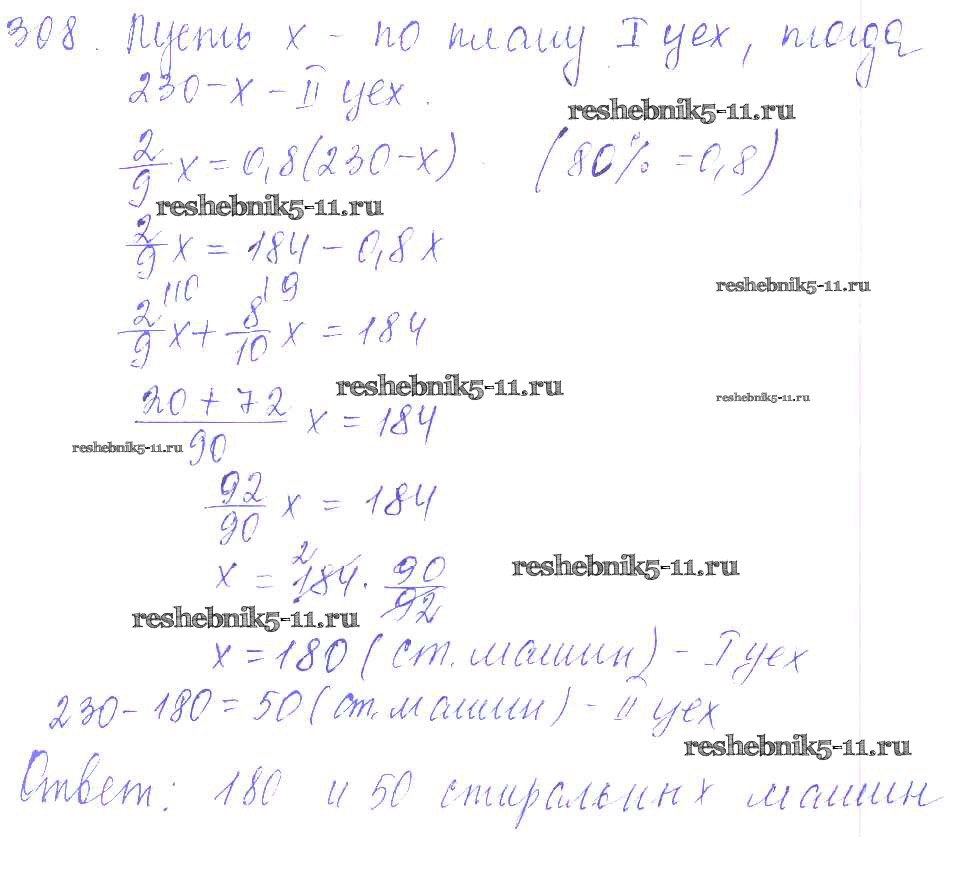 308. Пусть x - по плану I цех, тогда
230-x - II цех.
reshebnik5-11.ru
2/9 x = 0,8(230-x) (80% = 0,8)
reshebnik5-11.ru
2/9 x = 184 - 0,8x
reshebnik5-11.ru
2/9 |10 x + 8/10 |9 x = 184
reshebnik5-11.ru
reshebnik5-11.ru
(20+72)/90 x = 184
reshebnik5-11.ru
92/90 x = 184
x = 184 2 · 90/92
reshebnik5-11.ru
reshebnik5-11.ru
x = 180 (ст. машин) - I цех
230 - 180 = 50 (ст. машин) - II цех
reshebnik5-11.ru
Ответ: 180 и 50 стиральных машин